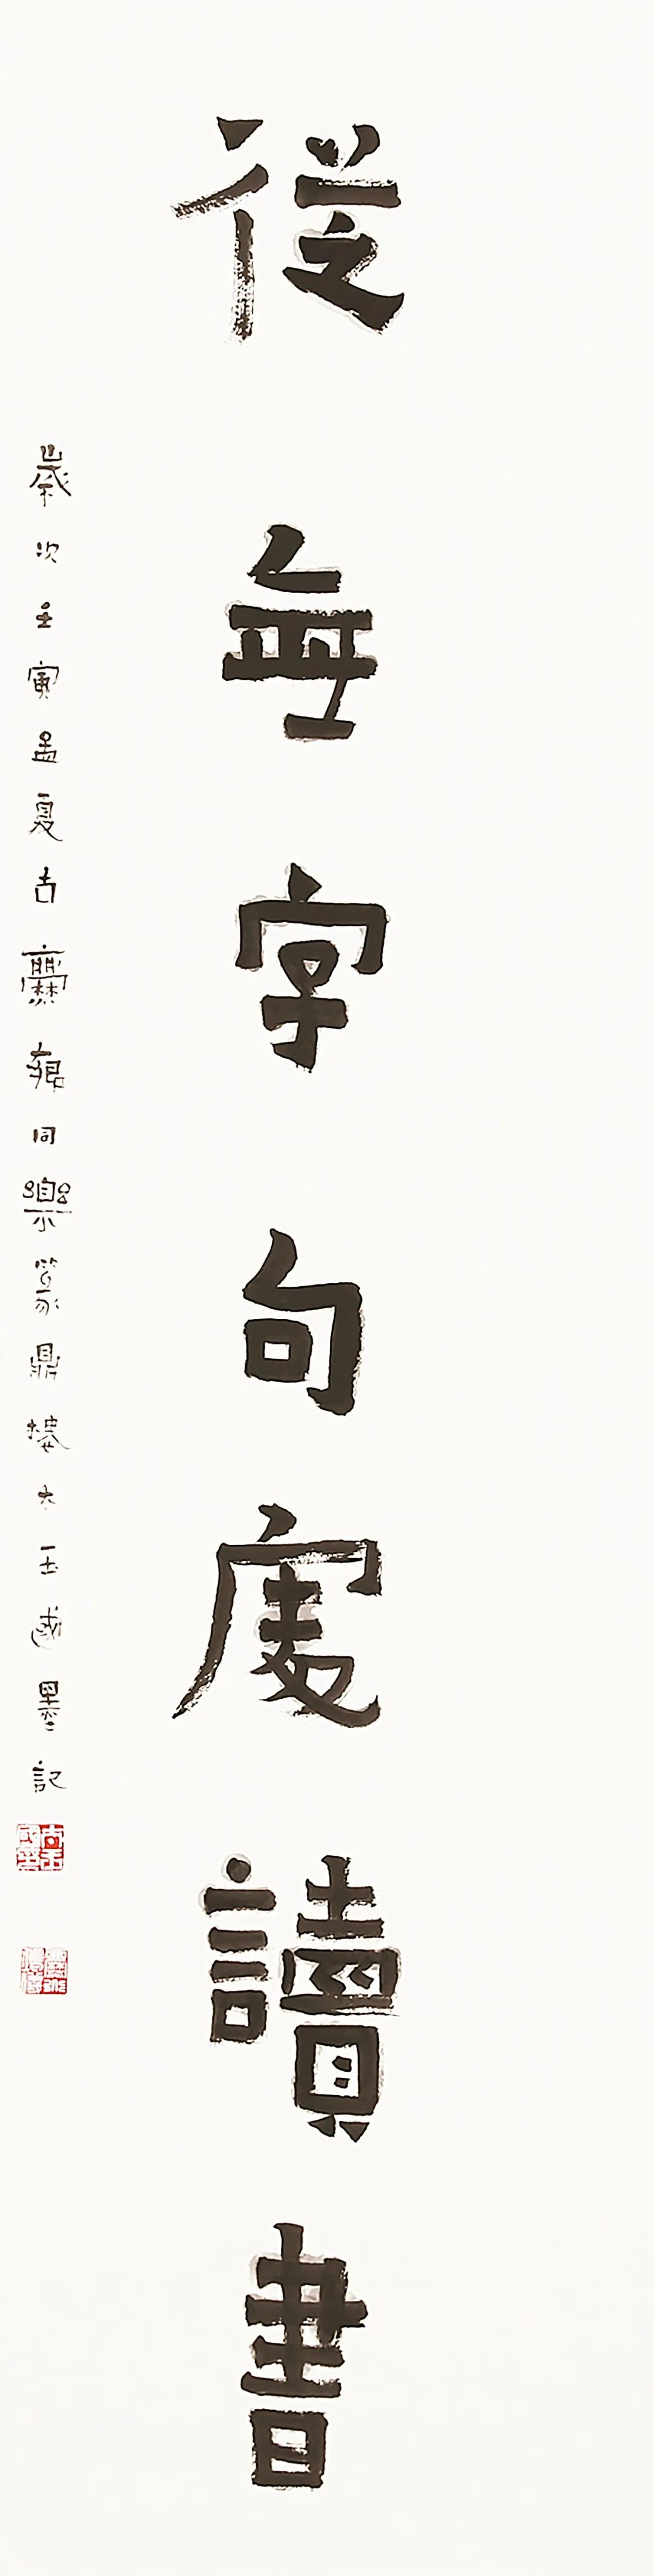 從無字句處讀書
歲次壬寅孟夏古爨鄉同樂篆鼎樓大玉國墨記